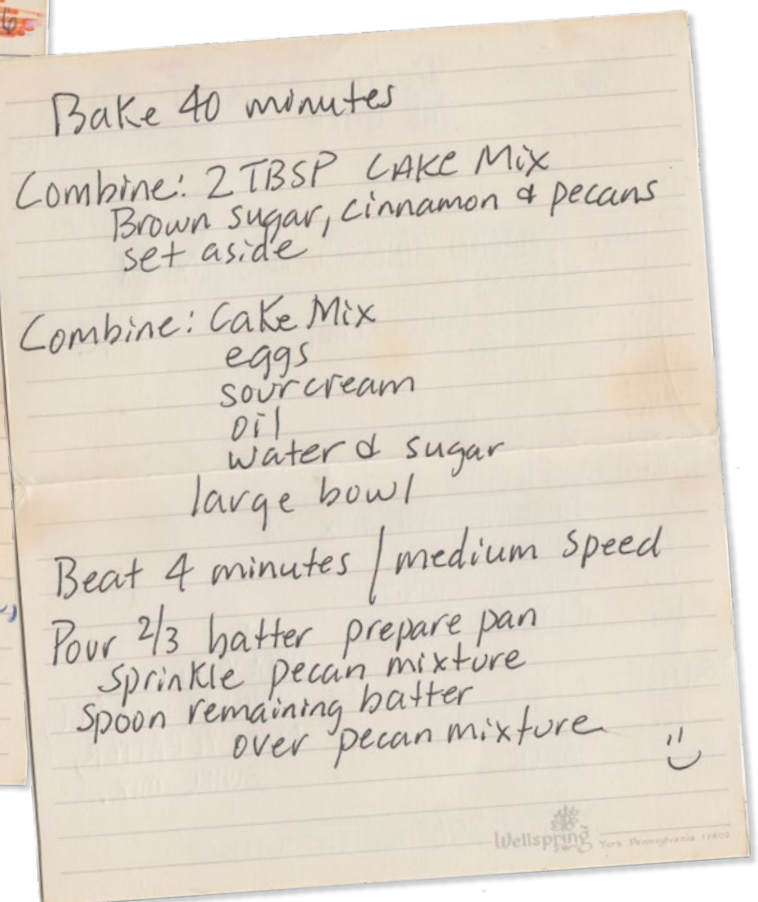 6
Bake 40 minutes
Combine: 2 TBSP CAKE Mix
Brown sugar, cinnamon & pecans
set aside
Combine: Cake Mix
eggs
sour cream
oil
water & sugar
large bowl
Beat 4 minutes / medium speed
Pour 2/3 batter prepare pan
sprinkle pecan mixture
spoon remaining batter
over pecan mixture
Wellspring York, Pennsylvania 17402